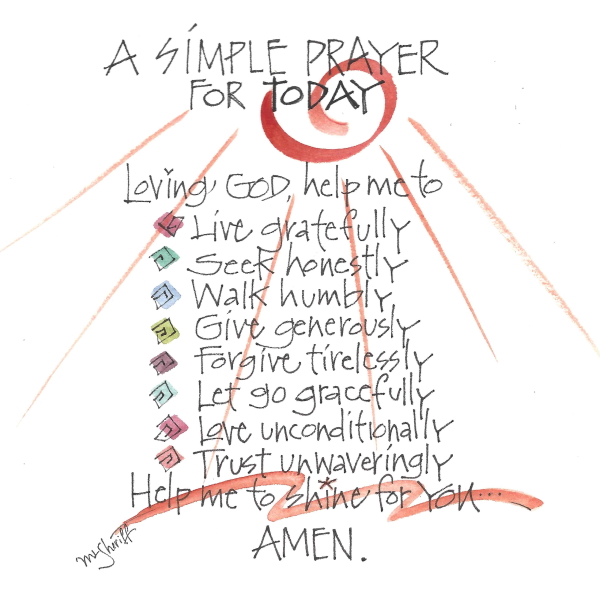 A SIMPLE PRAYER
FOR TODAY
Loving, GOD, help me to
Live gratefully
Seek honestly
Walk humbly
Give generously
Forgive tirelessly
Let go gracefully
Love unconditionally
Trust unwaveringly
Help me to shine for YOU...
AMEN.